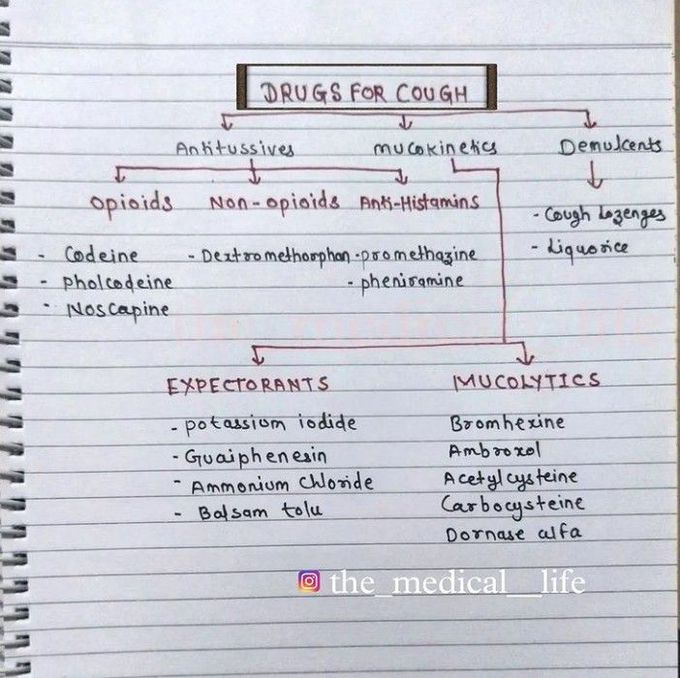 DRUGS FOR COUGH
Antitussives mucokinetics Demulcents
Opioids Non-opioids Anti-Histamins
- Codeine
- Pholcodeine
- Noscapine
- Dextromethorphan
- promethazine
- pheniramine
- Cough Lozenges
- Liquorice
EXPECTORANTS
- potassium iodide
- Guaiphenesin
- Ammonium Chloride
- Balsam tolu
MUCOLYTICS
Bromhexine
Ambroxol
Acetylcysteine
Carbocysteine
Dornase alfa
the_medical__life